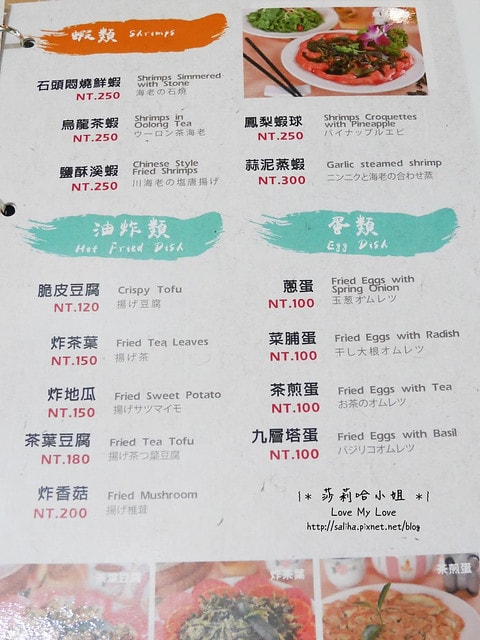 蝦類 Shrimps
石頭悶燒鮮蝦
NT.250
Shrimps Simmered
with Stone
海老の石焼
烏龍茶蝦
NT.250
Shrimps in
Oolong Tea
ウーロン茶海老
鹽酥溪蝦
NT.250
Chinese Style
Fried Shrimps
川海老の塩唐揚げ
鳳梨蝦球
NT.250
Shrimps Croquettes
with Pineapple
パイナップルエビ
蒜泥蒸蝦
NT.300
Garlic steamed shrimp
ニンニクと海老の合わせ蒸
油炸類
Hot Fried Dish
脆皮豆腐
NT.120
Crispy Tofu
揚げ豆腐
炸茶葉
NT.150
Fried Tea Leaves
揚げ茶
炸地瓜
NT.150
Fried Sweet Potato
揚げサツマイモ
茶葉豆腐
NT.180
Fried Tea Tofu
揚げ茶つ葉豆腐
炸香菇
NT.200
Fried Mushroom
揚げ椎茸
蛋類
Egg Dish
蔥蛋
NT.100
Fried Eggs with
Spring Onion
玉葱オムレツ
菜脯蛋
NT.100
Fried Eggs with Radish
干し大根オムレツ
茶煎蛋
NT.100
Fried Eggs with Tea
お茶のオムレツ
九層塔蛋
NT.100
Fried Eggs with Basil
バジリコオムレツ
|* 莎莉哈小姐 *|
Love My Love
http://saliha.pixnet.net/blog
茶葉豆腐
炸茶葉
茶煎蛋